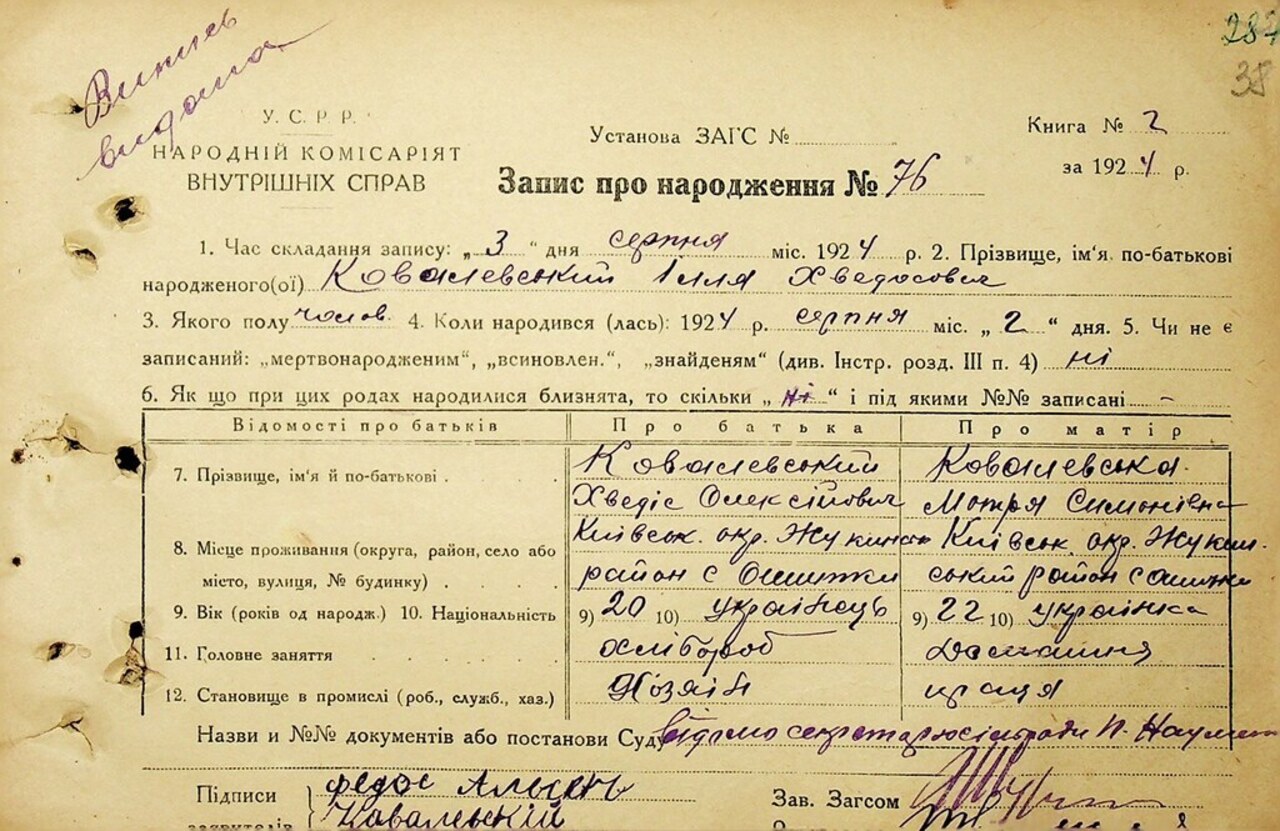 Випись
видана
287
38
У. С. Р. Р.
НАРОДНІЙ КОМІСАРІЯТ
ВНУТРІШНІХ СПРАВ
Установа ЗАГС №
Книга № 2
за 1924 р.
Запис про народження № 76
1. Час складання запису: „ 3 “ дня серпня міс. 1924 р. 2. Прізвище, ім'я, по-батькові
народженого(ої) Ковалевський Ілля Хведосович
3. Якого полу чолов. 4. Коли народився (лась): 1924 р. серпня міс. „ 2 “ дня. 5. Чи не є
записаний: „мертвонародженим“, „всиновлен.“, „знайденям“ (див. Інстр. розд. III п. 4) ні
6. Як що при цих родах народилися близнята, то скільки „ ні “ і під якими №№ записані -
Відомості про батьків Про батька Про матір
7. Прізвище, ім'я й по-батькові Ковалевський Ковалевська
Хведіс Олексійович Мотря Симонівна
8. Місце проживання (округа, район, село або Київськ. окр. Київськ. окр. Жукин-
місто, вулиця, № будинку) район с ський район с
9. Вік (років од народж.) 10. Національність 9) 20 10) українець 9) 22 10) українка
11. Головне заняття хлібороб домашня
12. Становище в промислі (роб., служб., хаз.) Хозяїн праця
Назви и №№ документів або постанови Суду відомо
Підписи Федос Зав. Загсом
заявителів Ковальській